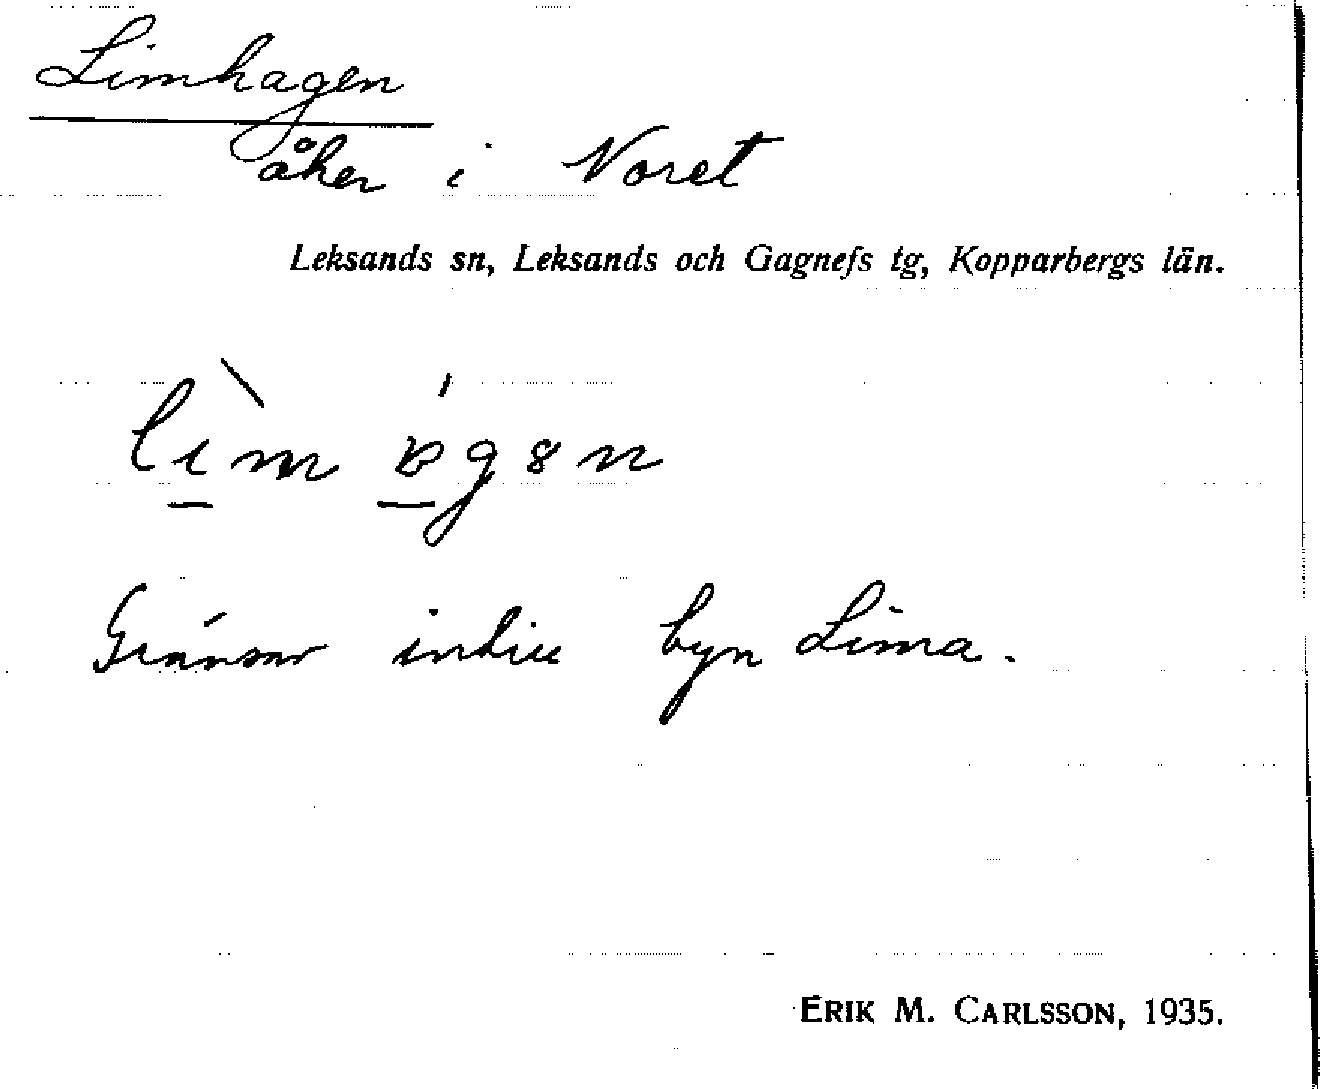 Limhagen
åker i Noret
Leksands sn, Leksands och Gagnefs tg, Kopparbergs län.
Gränsar intill byn Lima.
ERIK M. CARLSSON, 1935.